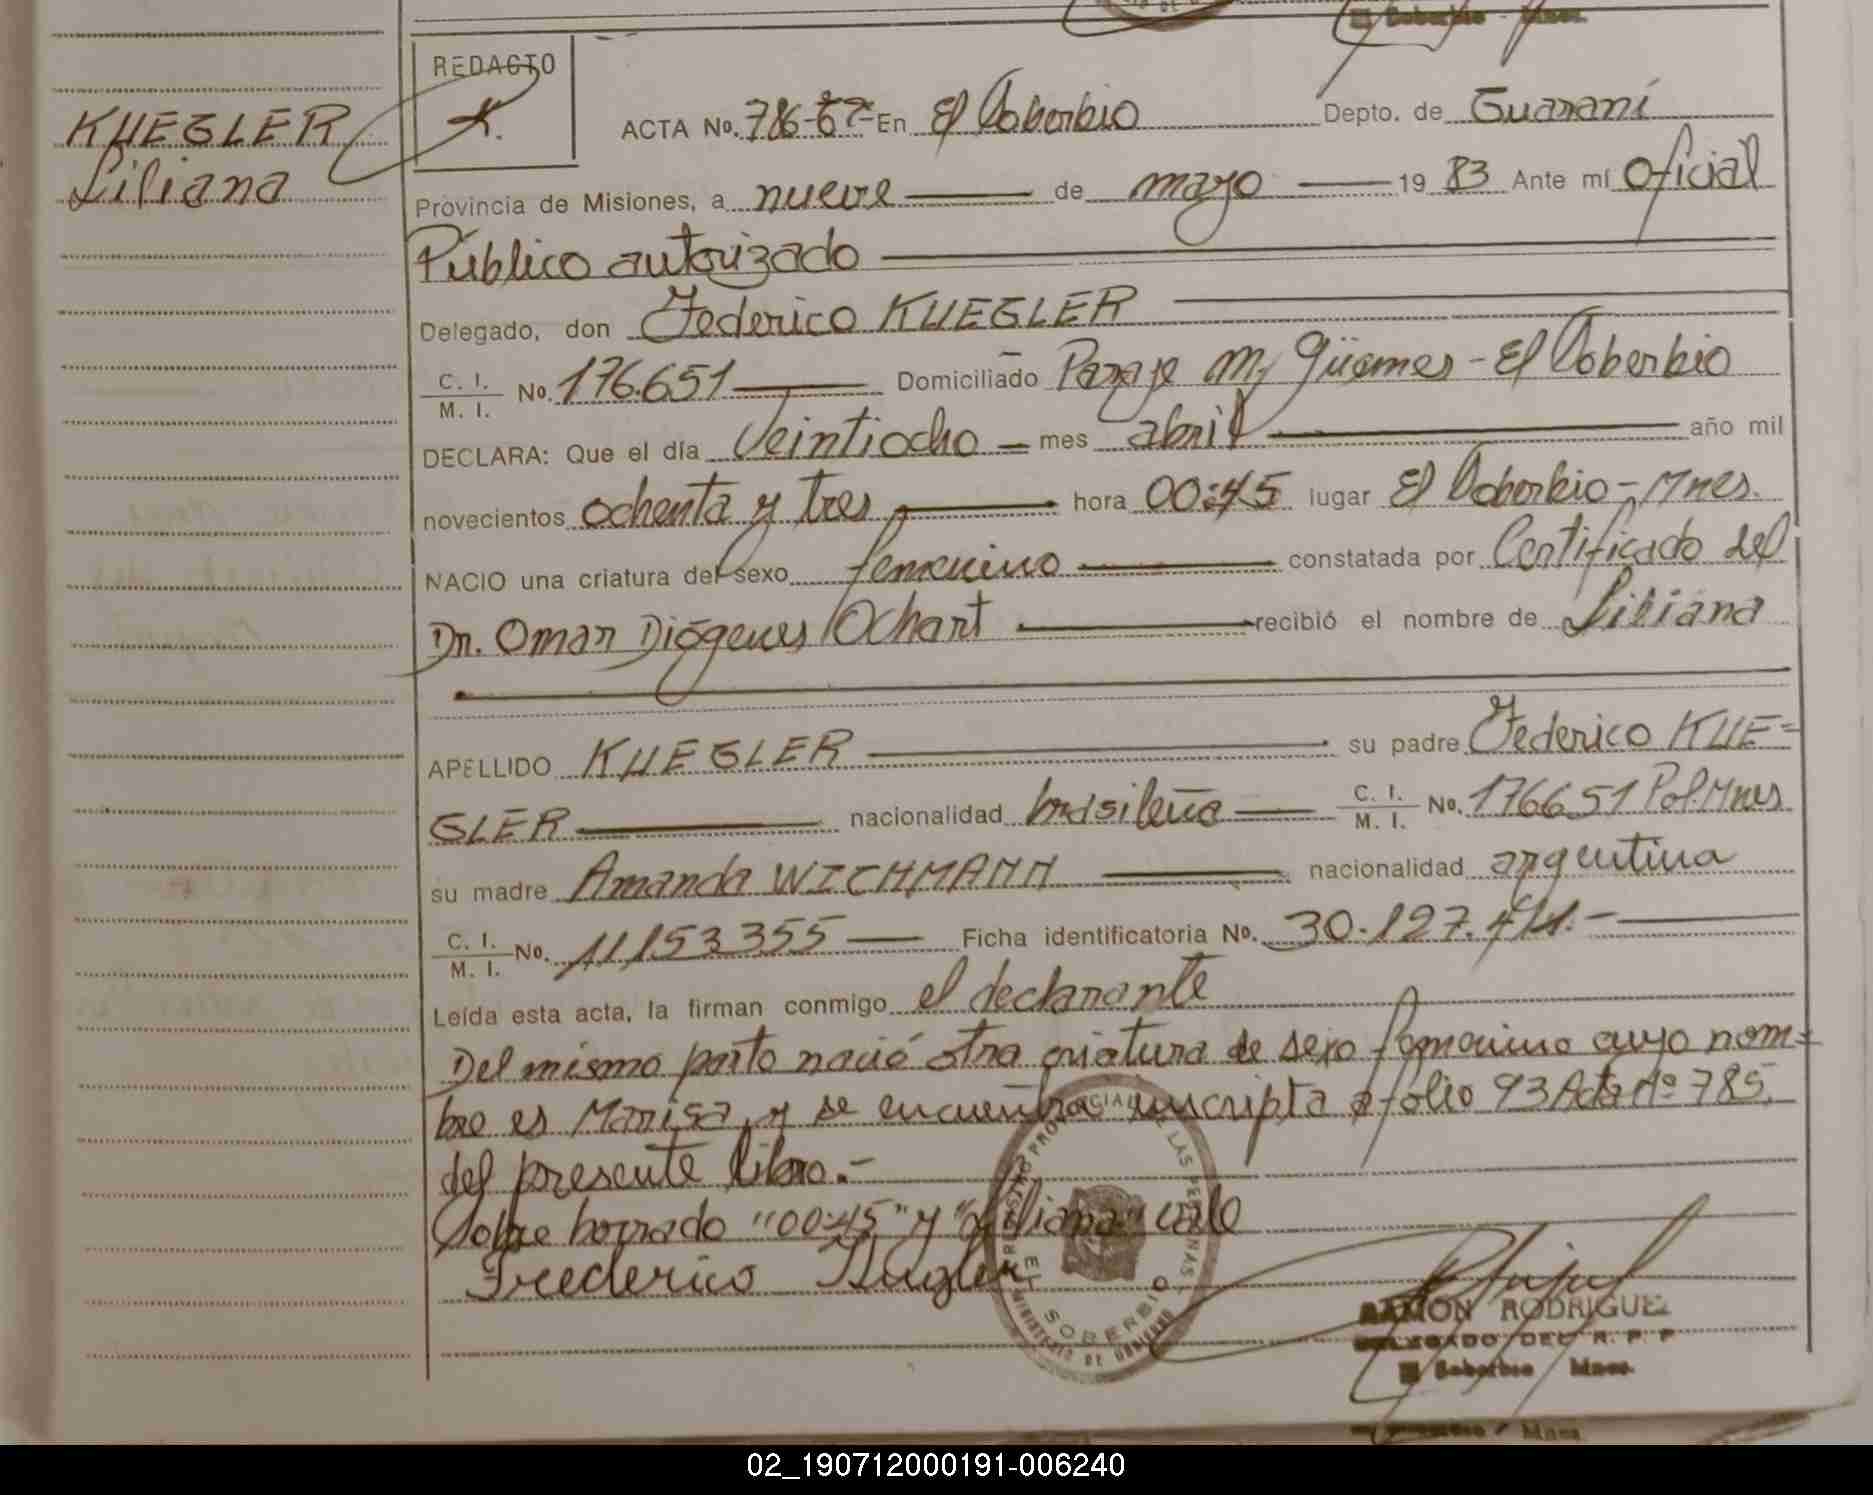 Soberbio - Mnes.
REDACTO
KUEGLER
Liliana
ACTA No. 786-6º- En El Soberbio Depto. de Guaraní
Provincia de Misiones, a nueve de mayo 19 83 Ante mí Oficial
Público autorizado
Delegado, don Federico KUEGLER
C. I. / M. I. No. 176.651 Domiciliado Paraje M, Güemes - El Soberbio
DECLARA: Que el día Veintiocho mes abril año mil
novecientos ochenta y tres hora 00:45 lugar El Soberbio - Mnes.
NACIO una criatura del sexo femenino constatada por Certificado del
Dr. Omar Diógenes Ochart recibió el nombre de Liliana
APELLIDO KUEGLER su padre Federico KUE=
GLER nacionalidad brasileña C. I. / M. I. No. 176651 Pol. Mnes
su madre Amanda WICHMANN nacionalidad argentina
C. I. / M. I. No. 11153355 Ficha identificatoria No. 30.127.411.-
Leída esta acta, la firman conmigo el declarante
Del mismo parto nació otra criatura de sexo femenino cuyo nom=
bre es Marisa, y se encuentra inscripta a folio 93 Acta Nº 785
del presente libro.-
Sobre borrado "00:45" y "Liliana" vale
Frederico Kugler
REGISTRO PROVINCIAL DE LAS PERSONAS
EL SOBERBIO
MINISTERIO DE GOBIERNO
RAMON RODRIGUEZ
DELEGADO DEL R. P. P
El Soberbio Mnes.
Soberbio Mnes.
02_190712000191-006240